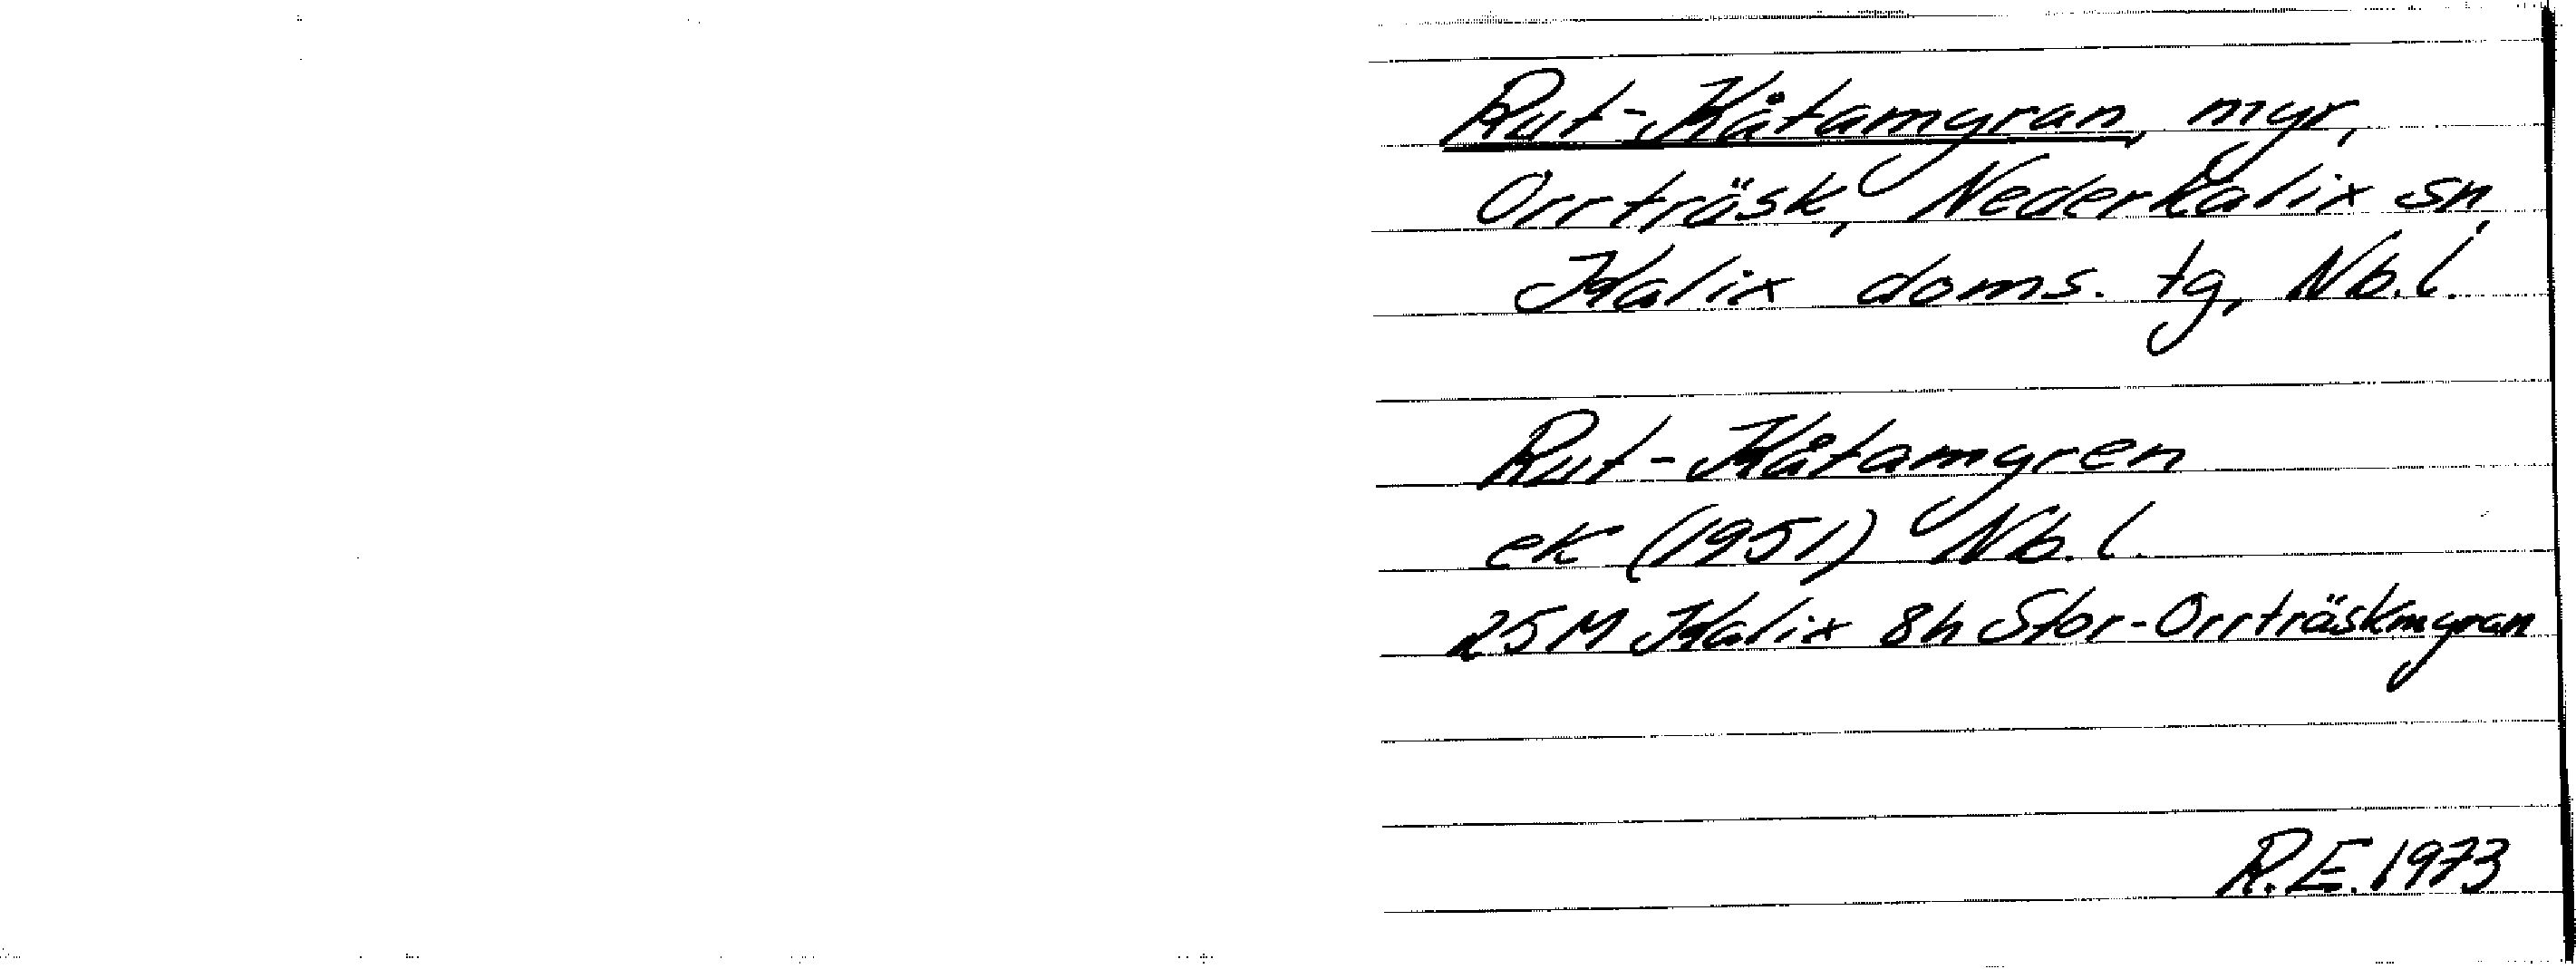 Rut-Kåtamyran, myr,
Orrträsk, Nederkalix sn,
Kalix doms. tg, Nb.l.
Rut-Kåtamyren
ek (1951) Nb.l.
25M Kalix 8h Stor-Orrträskmyran
R.E. 1973